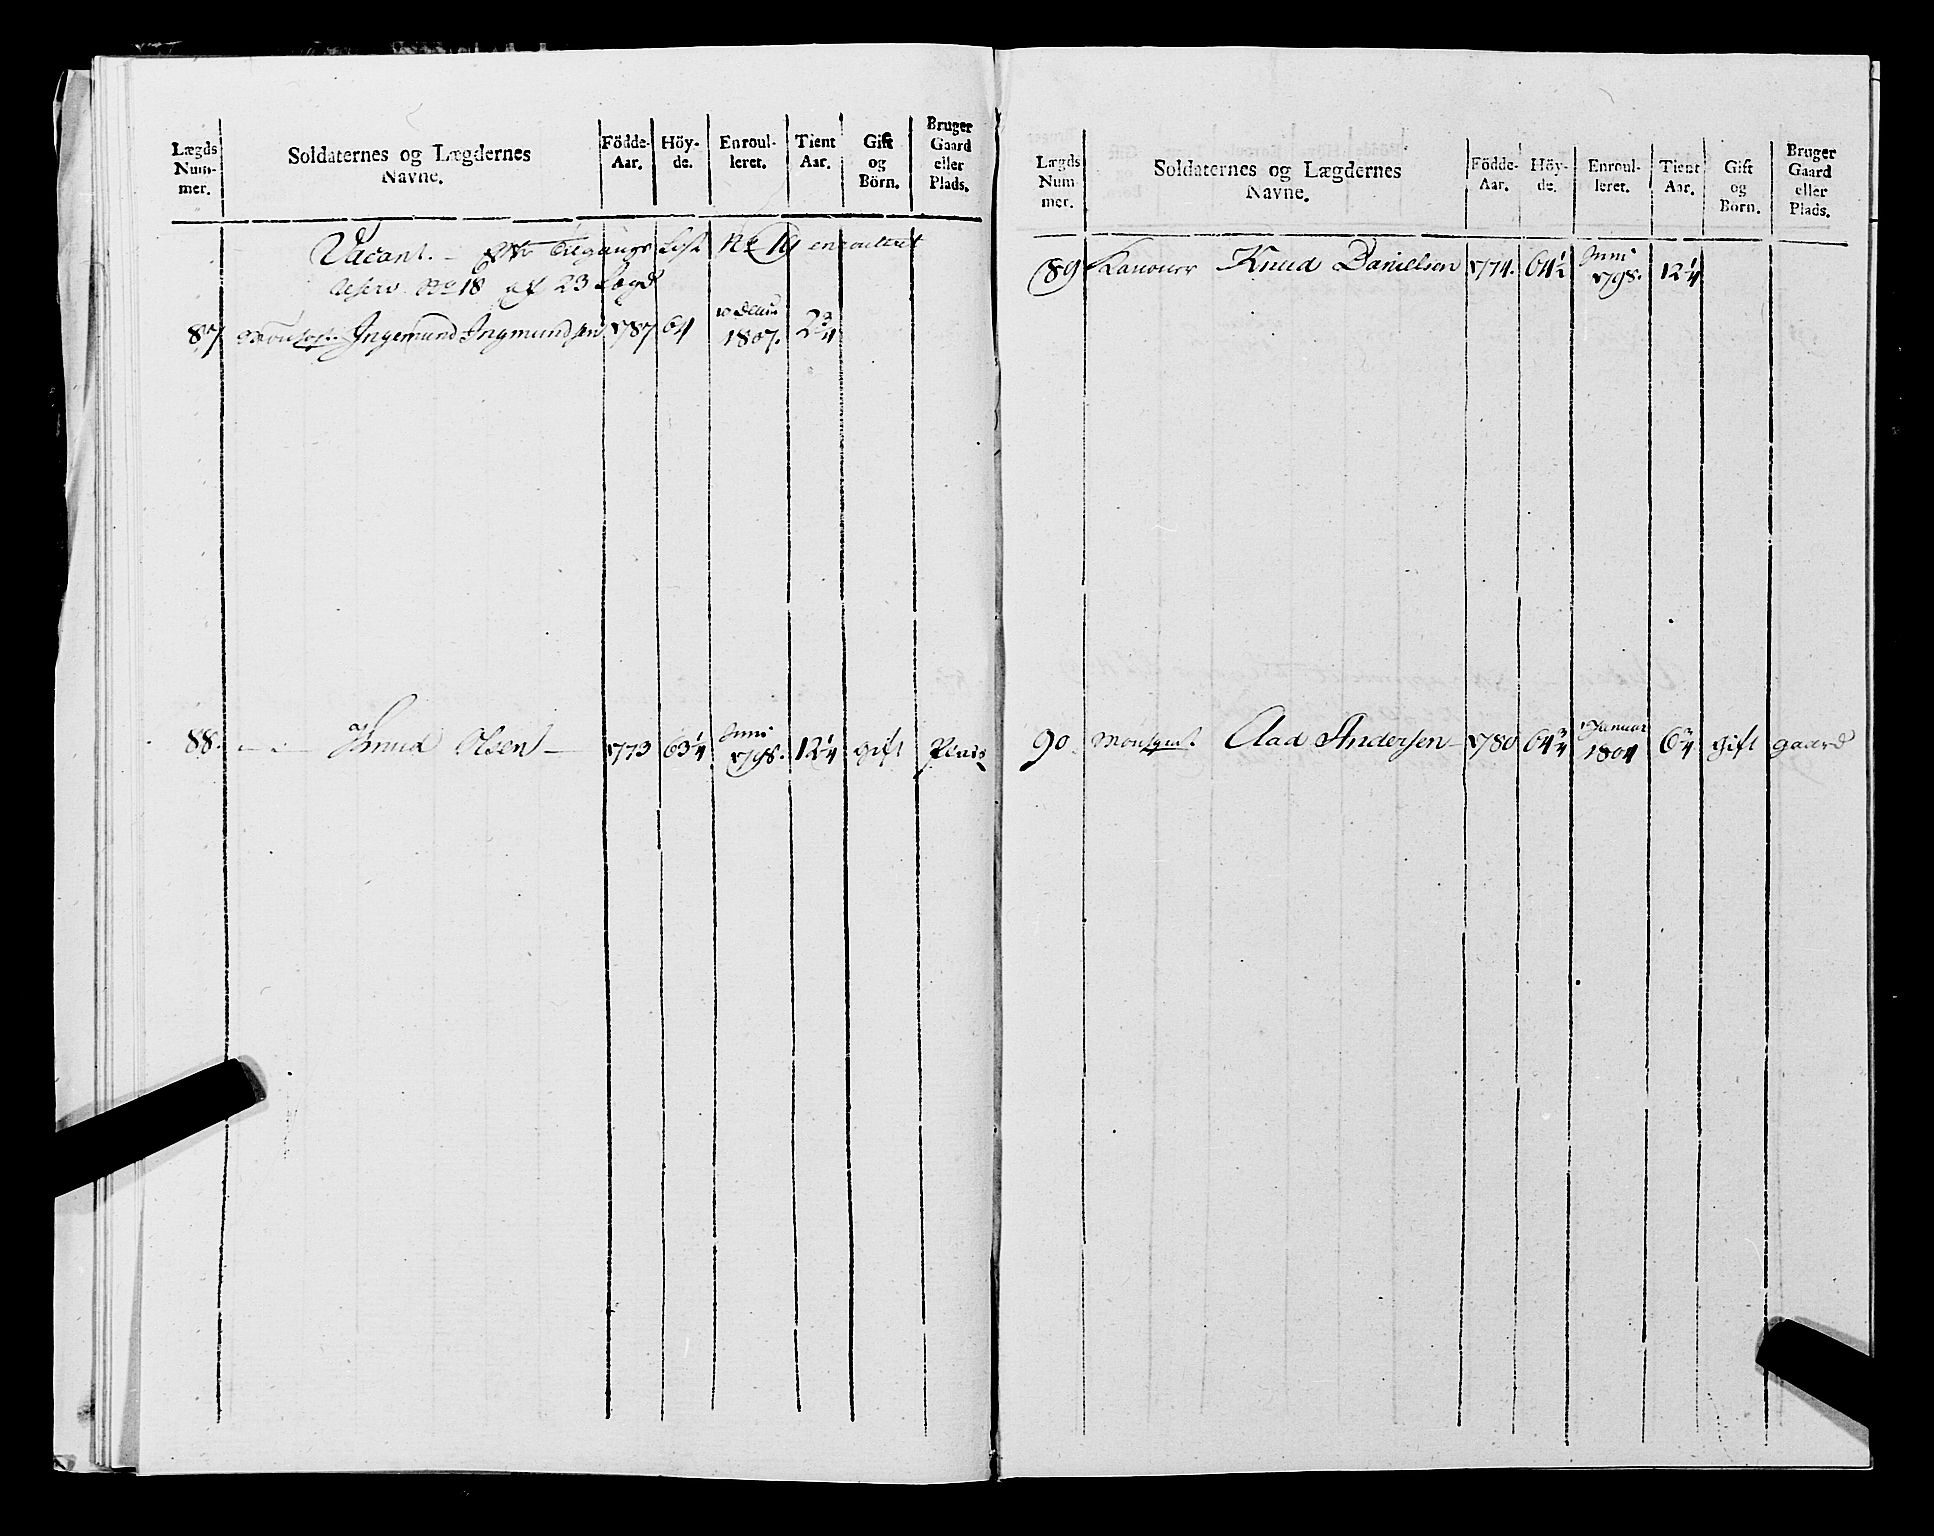 Lægds Num- mer. Soldaternes og Lægdernes Navne. Födde- Aar. Höy- de. Enroul- leret. Tient Aar. Gift og Börn. Bruger Gaard eller Plads.
Vacant. - Tilgangs Liste No 19 enroulleret
reserv No 18 af 23 Lægd
87 Ingemund Ingmundsen 1787 64 1807. 2 3/4
88. - - - Knud Olsen - 1773 63 1/4 Juni 1798. 12 1/4 gift Plads
Lægds Num- mer. Soldaternes og Lægdernes Navne. Födde- Aar. Höy- de. Enroul- leret. Tient Aar. Gift og Börn. Bruger Gaard eller Plads.
89 Kanoneer Knud Danielsen 1774. 64 1/2 Juni 1798. 12 1/4
90. Aad Andersen - 1780 64 3/4 Januar 1804 6 3/4 gift gaard